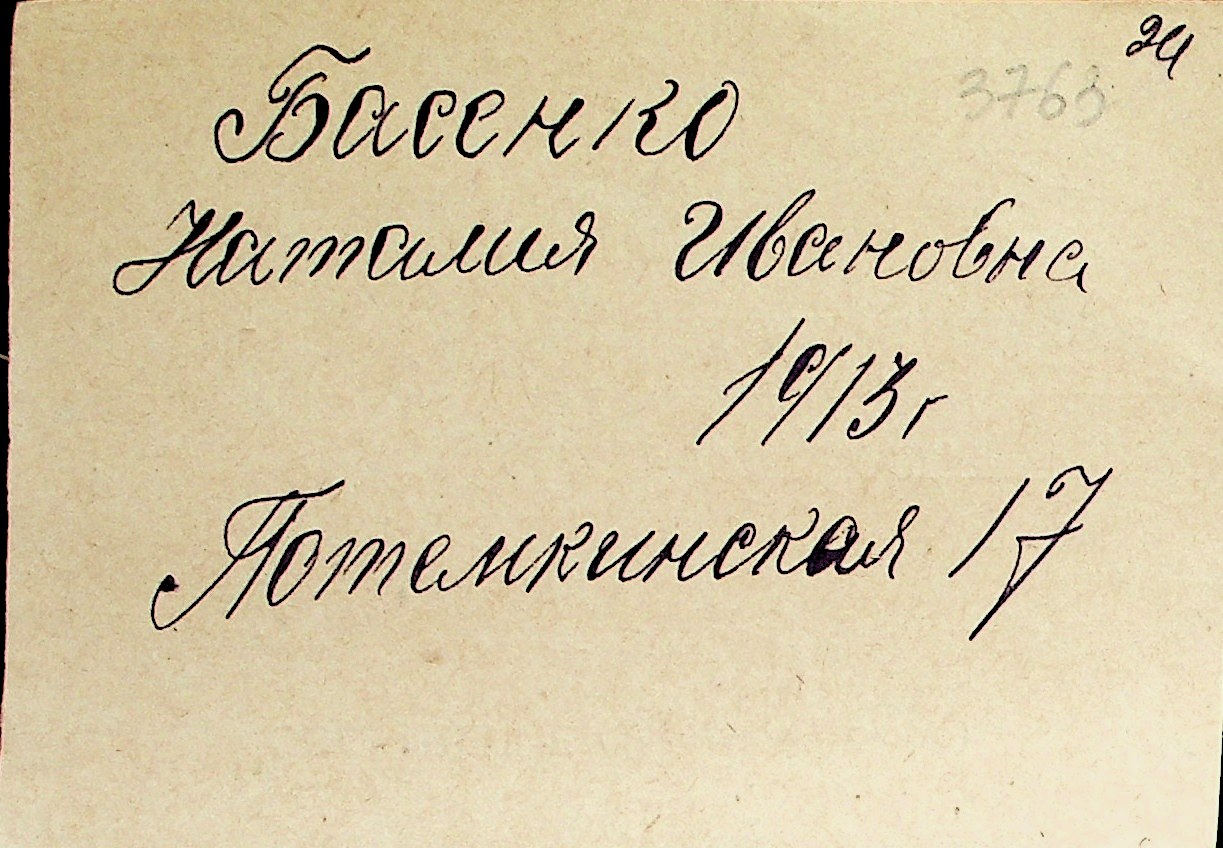 24
3763
Басенко
Наталия Ивановна
1913 г
Потемкинская 17